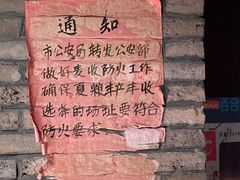 通知
市公安局转发公安部
做好麦收防火工作
确保夏粮丰产丰收
选条的场址要符合
防火要求